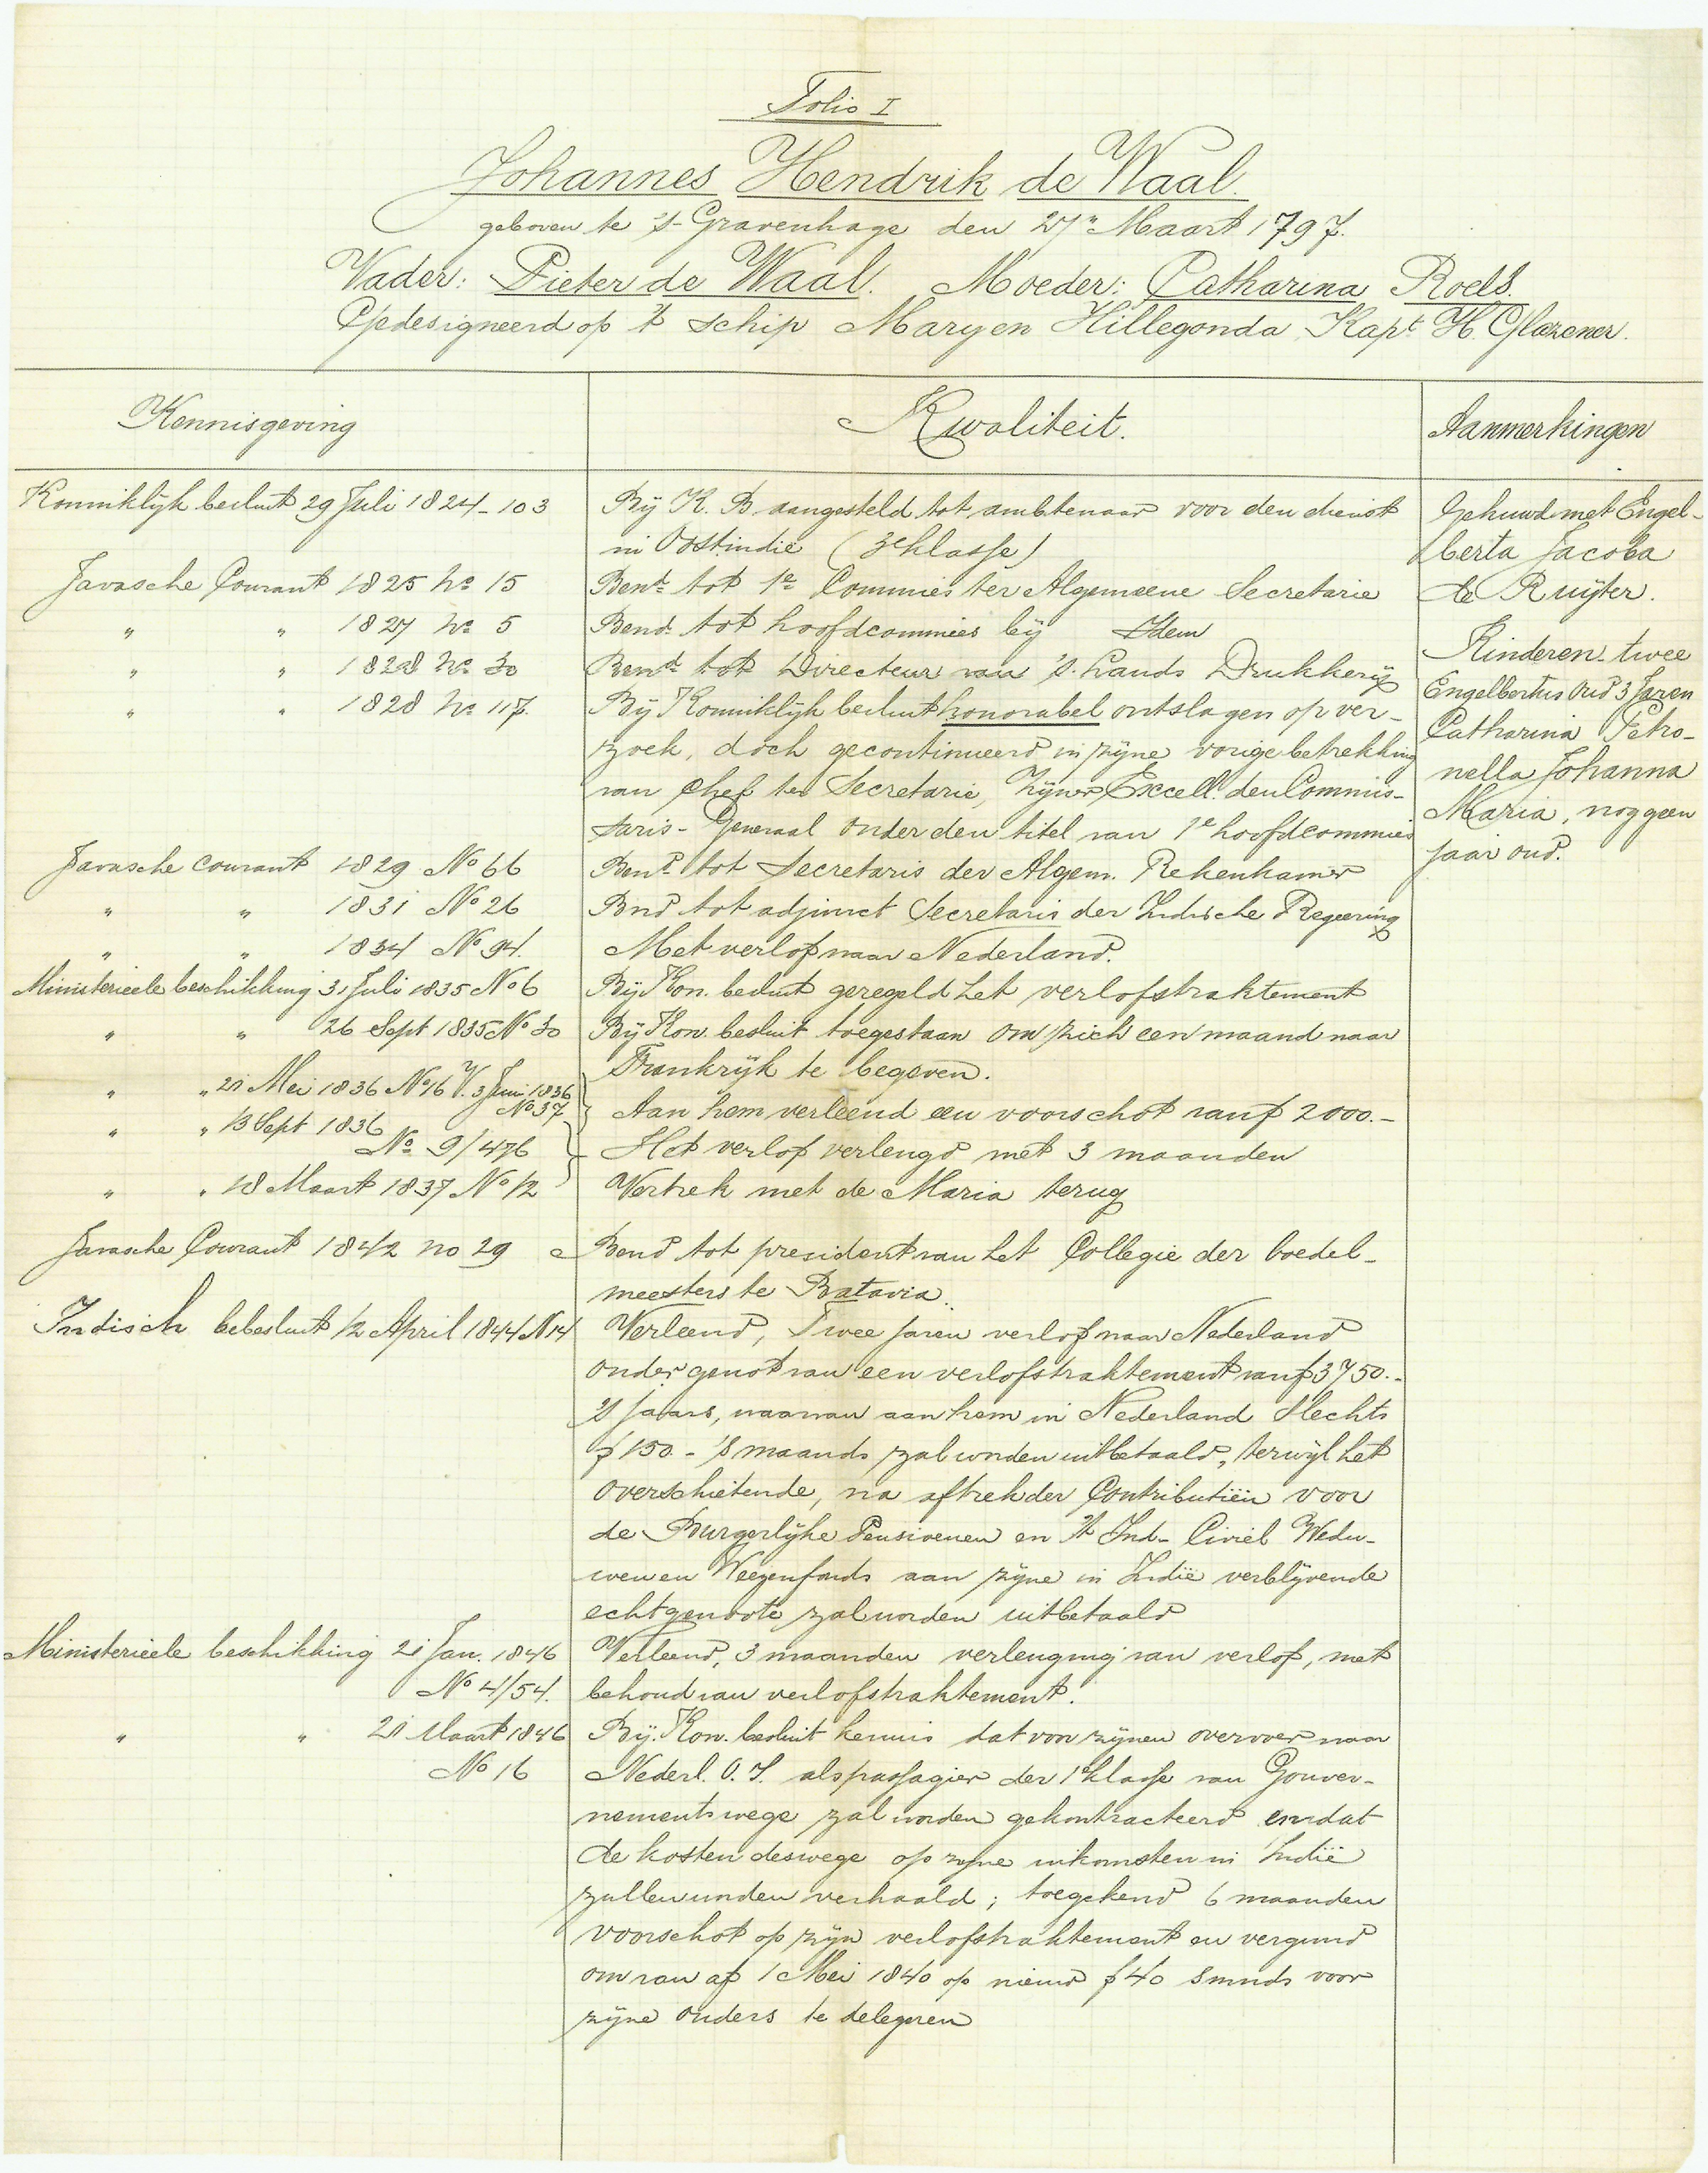 Folio I
Johannes Hendrik de Waal.
geboren te 's-Gravenhage den 27n Maart 1797.
Vader: Pieter de Waal. Moeder: Catharina Roels.
Gedesigneerd op 't schip Mary en Hillegonda, Kapt. H. Glazener.
Kennisgeving
Kwaliteit.
Aanmerkingen
Konninklijk besluit 29 Juli 1824 - 103
Bij K. B. aangesteld tot ambtenaar voor den dienst
in Oostindië (3e klasse)
Javasche Courant 1825 No 15
Bend tot 1e Commies ter Algemeene Secretarie
" " 1827 No 5
Bend tot hoofdcommies bij Idem
" " 1828 No 30
Bend tot Directeur van 's Lands Drukkerij
" " 1828 No 117.
Bij Konniklijk besluit honorabel ontslagen op ver-
zoek, doch gecontinueerd in zijne vorige betrekking
van Chef ter Secretarie, Zijner Excell. den Commis-
saris-Generaal onder den titel van 1e hoofdcommies
Javasche courant 1829 No 66
Bend tot Secretaris der Algem. Rekenkamer
" " 1831 No 26
Bnd tot adjunct Secretaris der Indische Regeering
" " 1834 No 94.
Met verlof naar Nederland.
Ministerieele beschikking 31 Juli 1835 No 6
Bij Kon. besluit geregeld het verlofstraktement
" " 26 Sept 1835 No 30
Bij Kon. besluit toegestaan om zich een maand naar
Frankrijk te begeven.
" " 21 Mei 1836 No 16 V. 3 Juni 1836
No 37
Aan hem verleend een voorschot van f 2000.-
" " 13 Sept 1836
No 9/476
Het verlof verlengd met 3 maanden
" " 18 Maart 1837 No 12
Vertrek met de Maria terug
Javasche Courant 1842 no 29
Bend tot president van het Collegie der boedel-
meesters te Batavia.
Indisch bebesluit 12 April 1844 N 14
Verleend, Twee jaren verlof naar Nederland
onder genot van een verlofstraktement van f 3750.-
's jaars, waarvan aan hem in Nederland slechts
f 150.- 's maands zal worden uitbetaald, terwijl het
overschietende, na aftrek der Contributiën voor
de Burgerlijke Pensioenen en 't Ind- Civiel Wedu-
wen en Weezenfonds aan zijne in Indië verblijvende
echtgenoote zal worden uitbetaald
Ministerieele beschikking 21 Jan. 1846
No 4/54.
Verleend, 3 maanden verlenging van verlof, met
behoud van verlofstraktement.
" " 21 Maart 1846
No 16
Bij. Kon. besluit kennis dat voor zijnen overvoer naar
Nederl. O. I. als passagier der 1e klasse van Gouver-
nementswege zal worden gekontracteerd en dat
de kosten deswege op zijne inkomsten in Indië
zullen worden verhaald; toegekend 6 maanden
voorschot op zijn verlofstraktement en vergund
om van af 1 Mei 1840 op nieuw f 40 smnds voor
zijne ouders te delegeren
Gehuwd met Engel-
berta Jacoba
de Ruijter.
Kinderen twee
Engelbertus Oud 3 Jaren
Catharina Petro-
nella Johanna
Maria, nog geen
jaar oud.